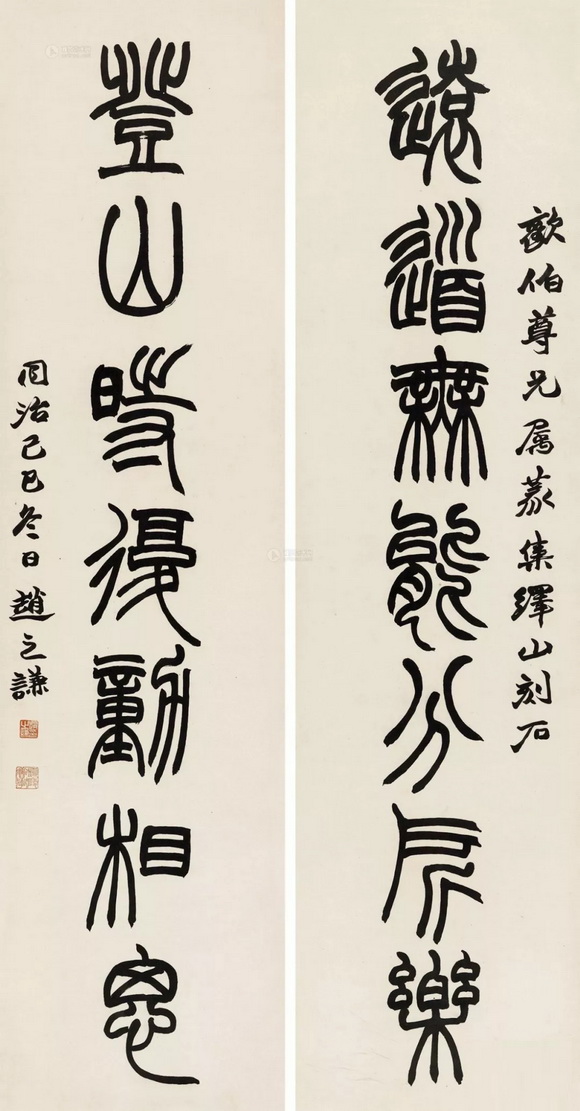 伯尊兄屬篆集繹山刻石
遠道無能分所樂
登山時復動相思
同治己巳冬日趙之謙